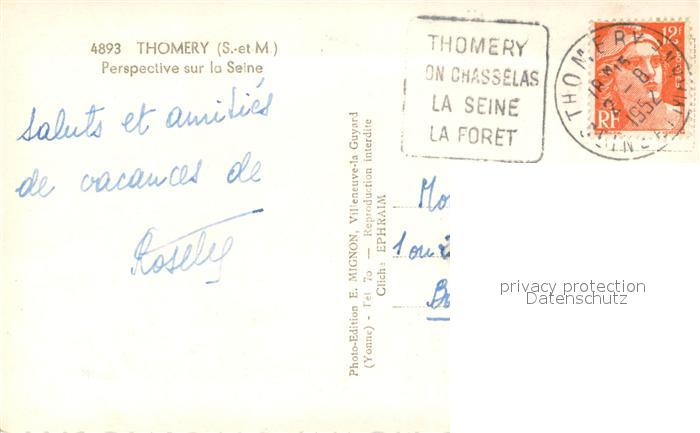 4893 THOMERY (S.-et M.)
Perspective sur la Seine
saluts et amitiés
de vacances de
Photo-Edition E. MIGNON, Villeneuve-la Guyard
(Yonne) — Tél 70 — Reproduction interdite
Cliché EPHRAIM
THOMERY
ON CHASSELAS
LA SEINE
LA FORET
THOMERY
18H15
2-8
1952
12F
RF
privacy protection
Datenschutz